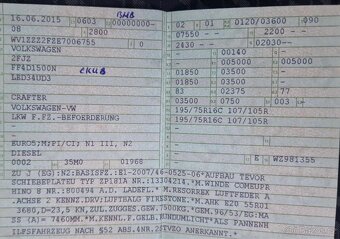 BHB
16.06.2015 0603 00000000-
08 2800
WV1ZZZ2FZE7006755 0
VOLKSWAGEN
2FJZ
FF4D1500N CKUB
LED34UD3
CRAFTER
VOLKSWAGEN-VW
LKW F.FZ.-BEFOERDERUNG
EURO5;M;PI/CI; N1 III, N2
DIESEL
0002 35M0 01968
02 01 0120/03600 090
07550 -- 2200 --
2430 -- 02030--
00140 --
005000 005000
01850 03500
01850 03500
83 02375 77
03500 0750 003
195/75R16C 107/105R
195/75R16C 107/105R
E WZ981355
ZU J (EG):N2:BASISFZ.:E1-2007/46-0525-06*AUFBAU TEVOR
SCHIEBEPLATEU TYP SP181A NR:13304214.*M.WINDE COMEUPR
HINO 8 NR.:800494 A.D. LADEFL.* M.RESORBEK LUFTFEDER A
.ACHSE 2 KENNZ.DRV;LUFTBALG FIRESTONE.*M.AHK E20 55R01
3680,D=23,5 KN,ZUL.ZUGGES.GEW.7500KG*GEM.96/53/EG:MA
SS (A)= 7460MM.*M.KENNL.F.GELB.RUNDUMLICHT*ALS PANNENH
ILFSFAHRZEUG NACH §52 ABS.4NR.2STVZO ANERKANNT.*